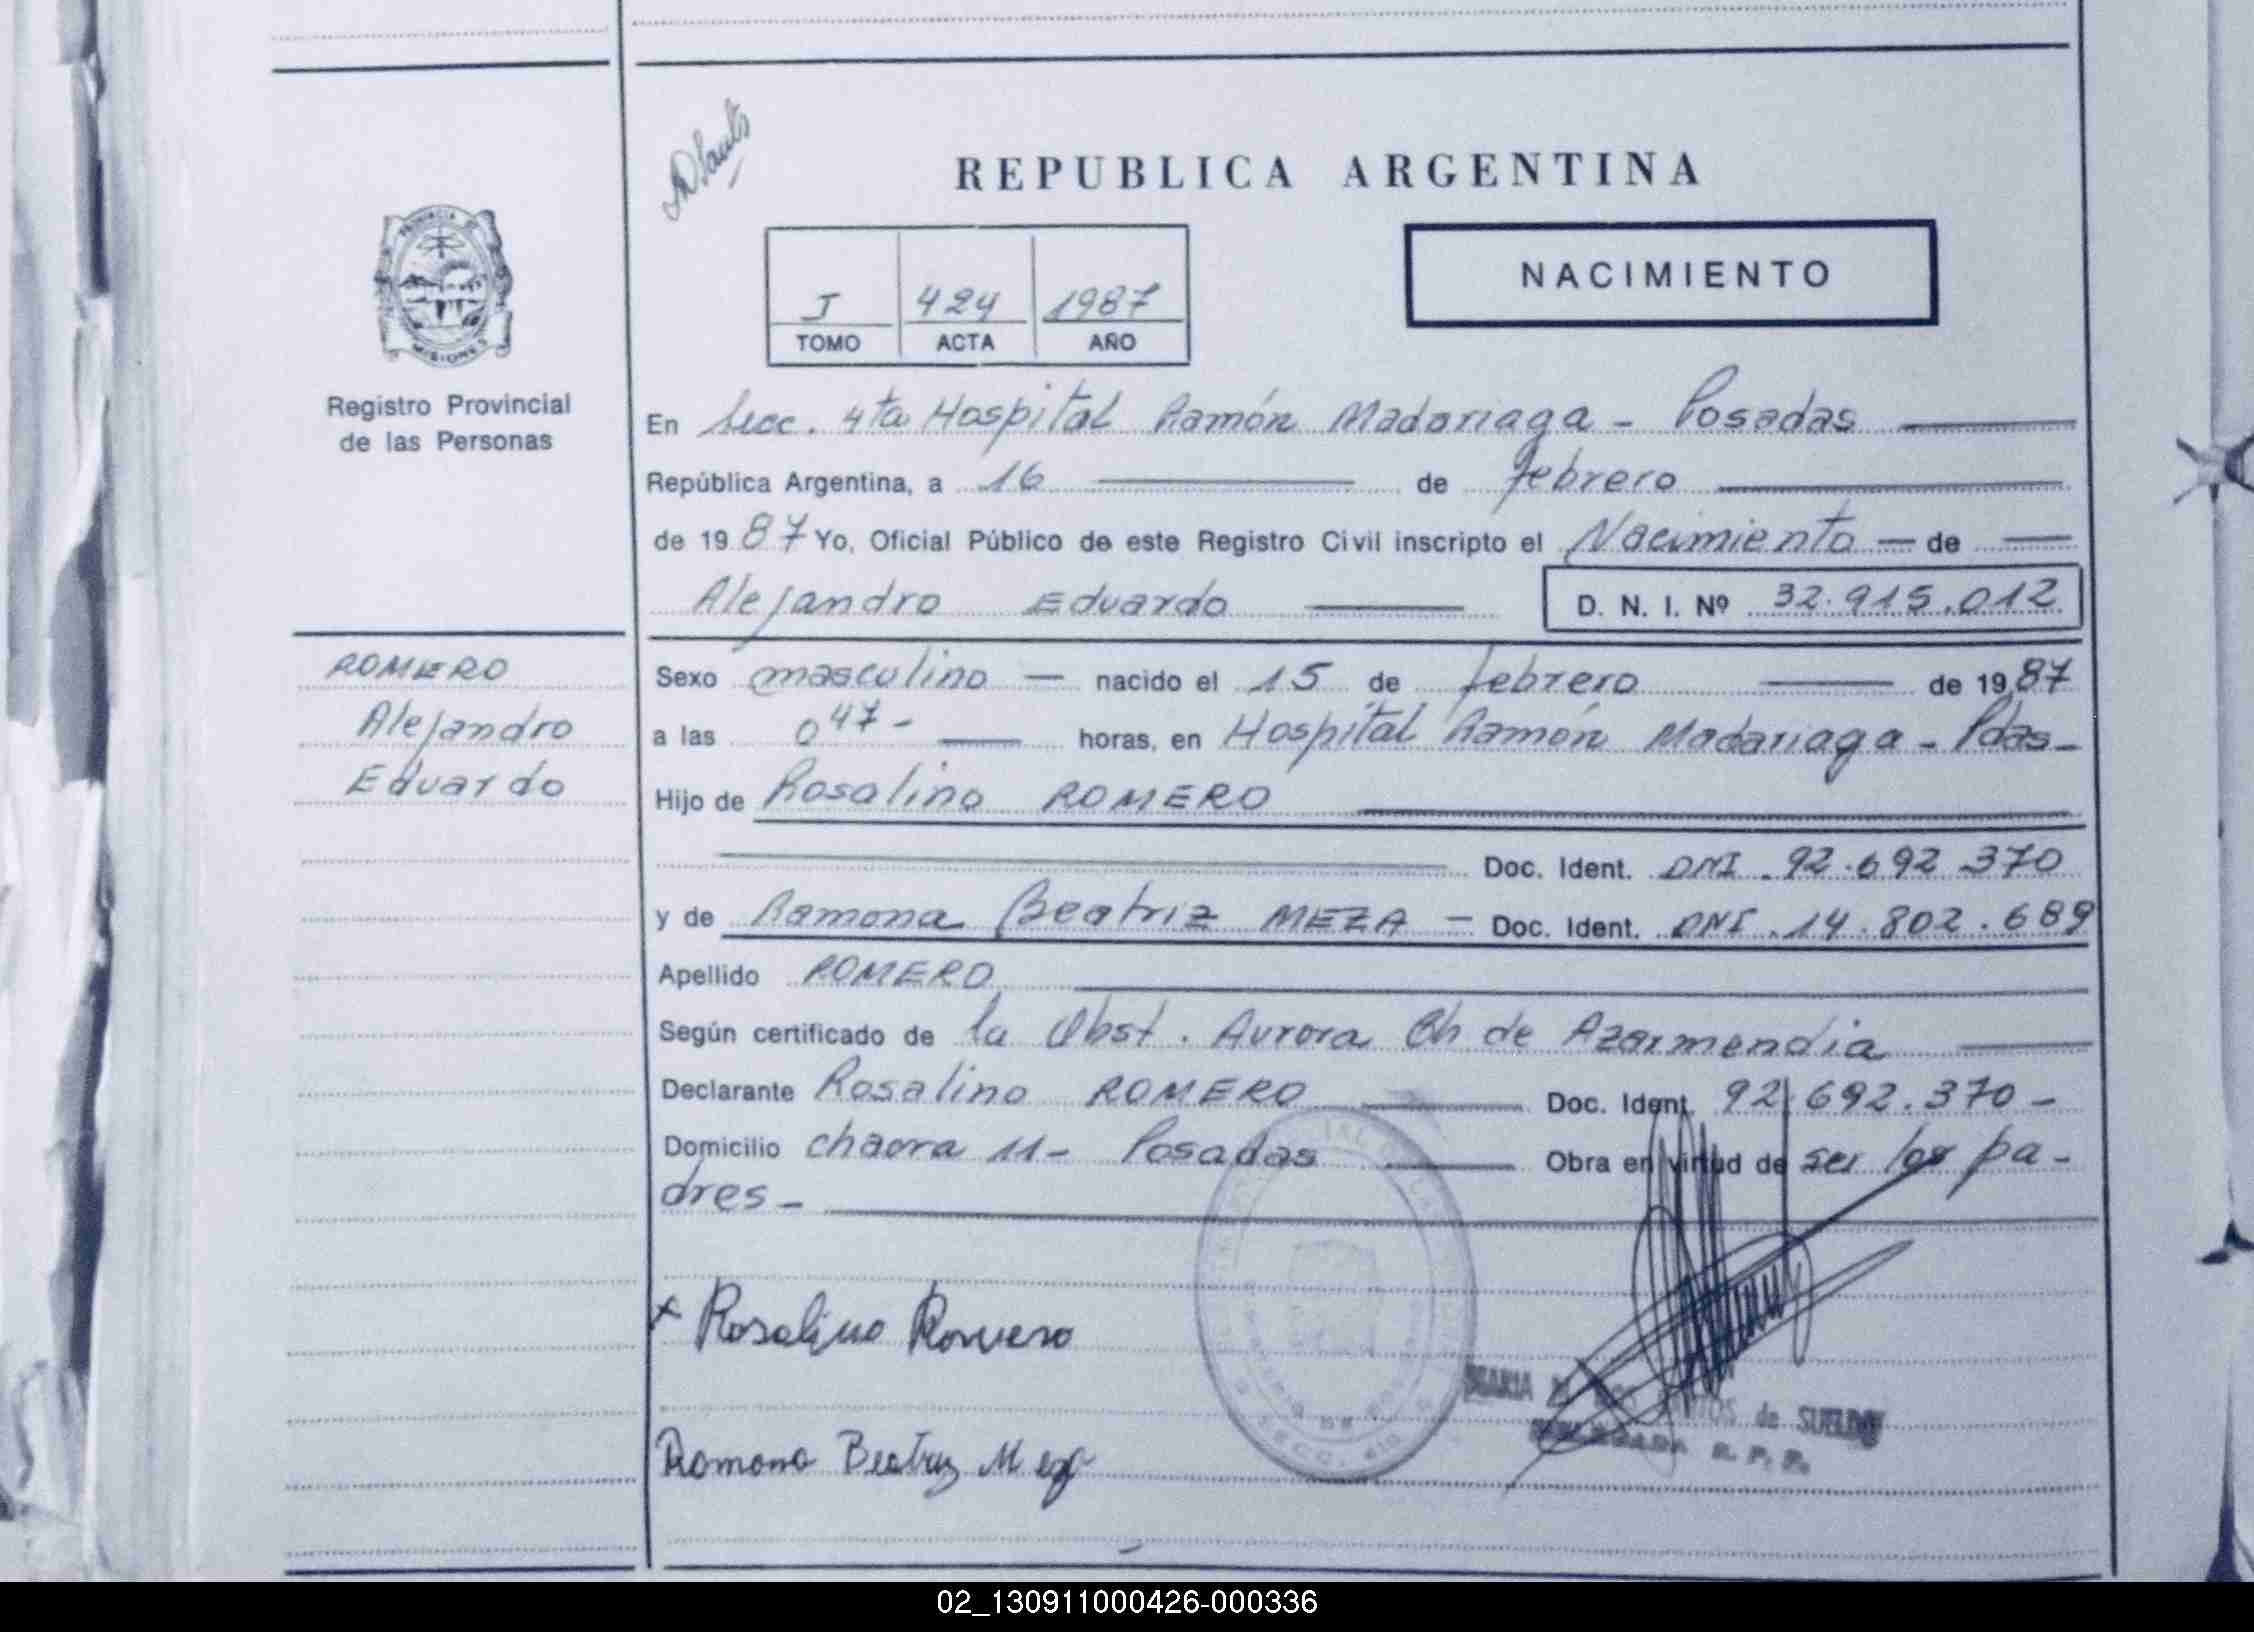 REPUBLICA ARGENTINA
NACIMIENTO
PROVINCIA DE
MISIONES
Registro Provincial
de las Personas
ROMERO
Alejandro
Eduardo
I 424 1987
TOMO ACTA AÑO
En Secc. 4ta Hospital Ramón Madariaga - Posadas
República Argentina, a 16 de febrero
de 1987 Yo, Oficial Público de este Registro Civil inscripto el Nacimiento — de
Alejandro Eduardo D. N. I. Nº 32.915.012
Sexo masculino — nacido el 15 de febrero de 1987
a las 0 47 - horas, en Hospital Ramón Madariaga - Pdas -
Hijo de Rosalino ROMERO
Doc. Ident. DNI. 92.692 370
y de Ramona Beatriz MEZA — Doc. Ident. DNI. 14.802.689
Apellido ROMERO
Según certificado de la Obst. Aurora Ch de Azarmendia
Declarante Rosalino ROMERO Doc. Ident. 92.692.370 -
Domicilio chacra 11 - Posadas Obra en virtud de ser los pa-
dres -
x Rosalino Romero
Ramona Beatriz Meza
de SUELDO
R. P. P.
02_130911000426-000336